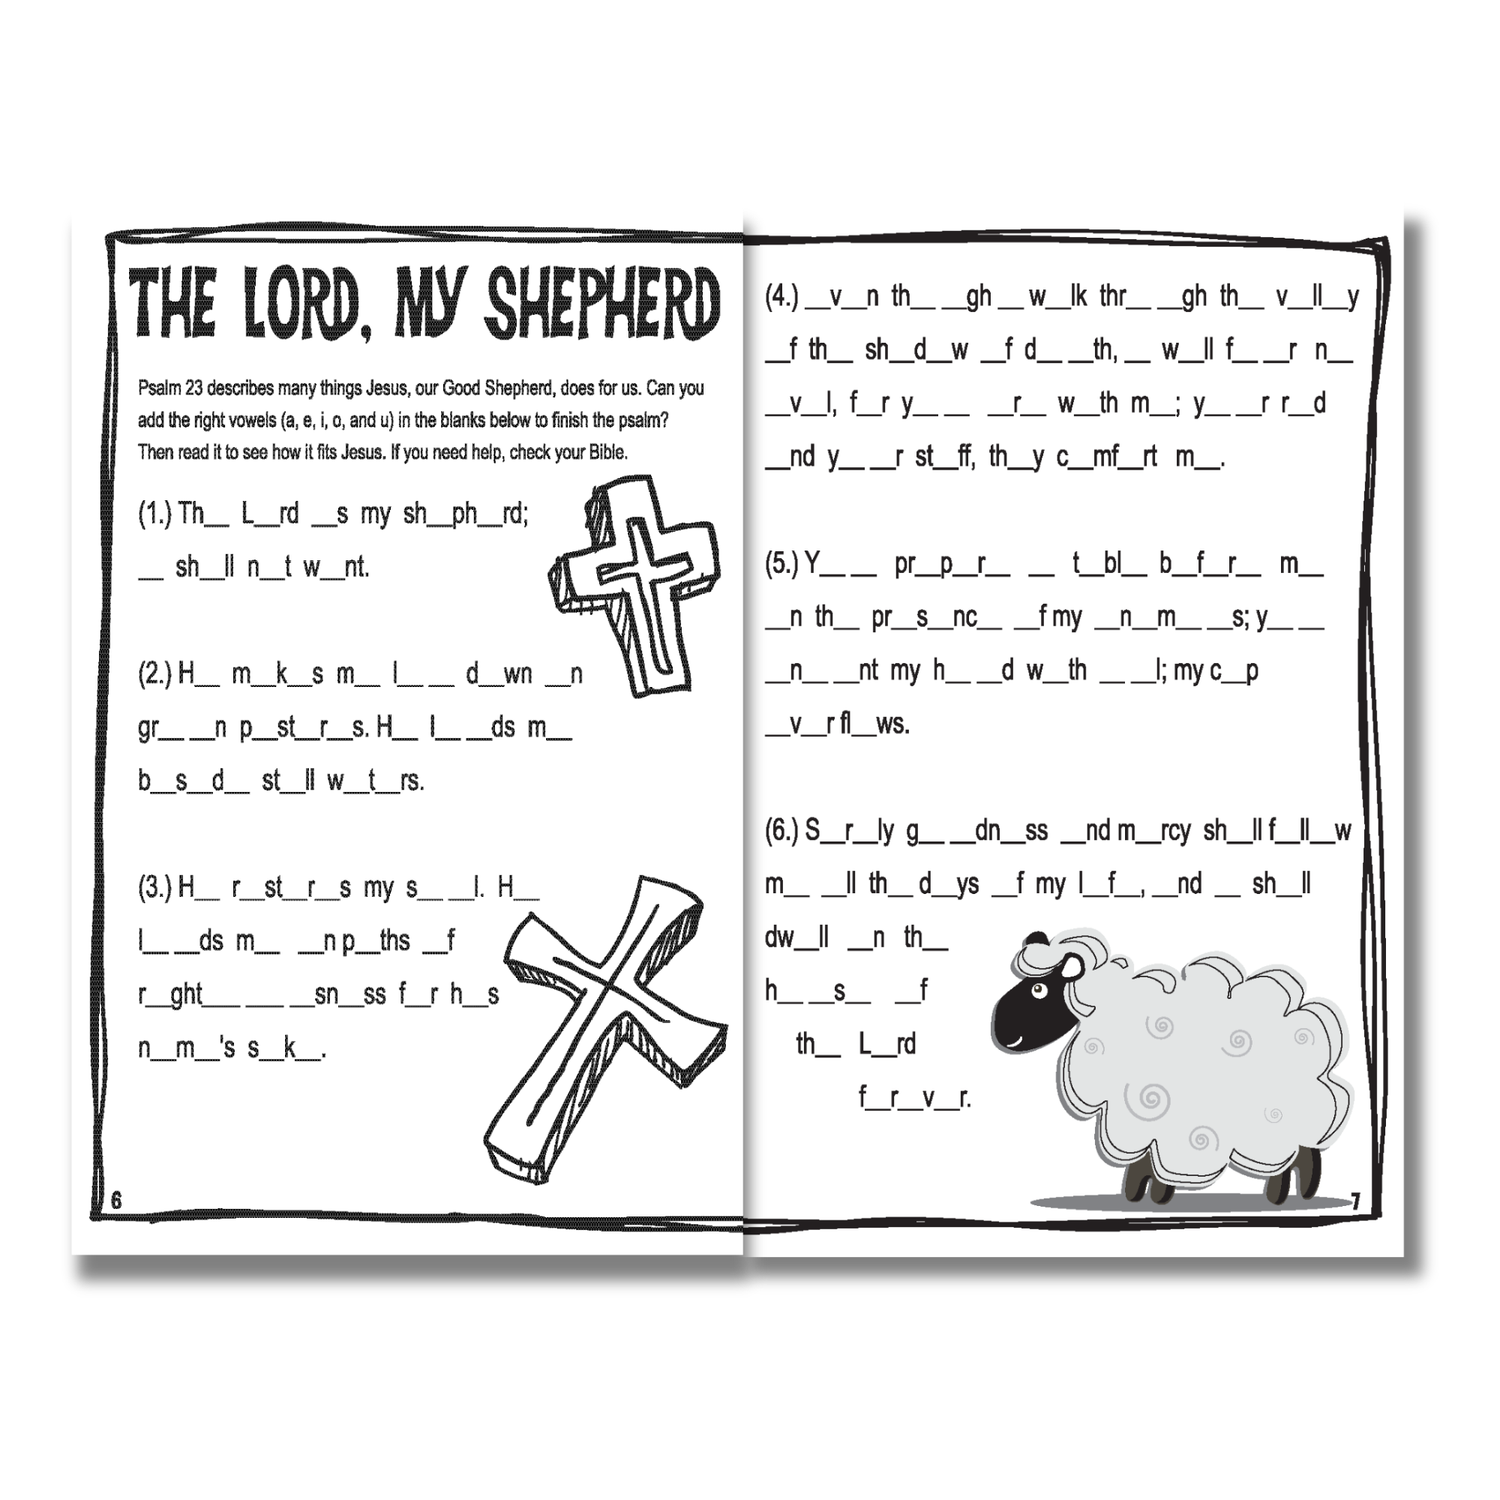 THE LORD, MY SHEPHERD
Psalm 23 describes many things Jesus, our Good Shepherd, does for us. Can you
add the right vowels (a, e, i, o, and u) in the blanks below to finish the psalm?
Then read it to see how it fits Jesus. If you need help, check your Bible.
(1.) Th__ L__rd __s my sh__ph__rd;
__ sh__ll n__t w__nt.
(2.) H__ m__k__s m__ l__ __ d__wn __n
gr__ __n p__st__r__s. H__ l__ __ds m__
b__s__d__ st__ll w__t__rs.
(3.) H__ r__st__r__s my s__ __l. H__
l__ __ds m__ __n p__ths __f
r__ght___ ___ __sn__ss f__r h__s
n__m__'s s__k__.
6
(4.) __v__n th__ __gh __ w__lk thr__ __gh th__ v__ll__y
__f th__ sh__d__w __f d__ __th, __ w__ll f__ __r n__
__v__l, f__r y__ __ __r__ w__th m__; y__ __r r__d
__nd y__ __r st__ff, th__y c__mf__rt m__.
(5.) Y__ __ pr__p__r__ __ t__bl__ b__f__r__ m__
__n th__ pr__s__nc__ __f my __n__m__ __s; y__ __
__n__ __nt my h__ __d w__th __ __l; my c__p
__v__rfl__ws.
(6.) S__r__ly g__ __dn__ss __nd m__rcy sh__ll f__ll__w
m__ __ll th__ d__ys __f my l__f__, __nd __ sh__ll
dw__ll __n th__
h__ __s__ __f
th__ L__rd
f__r__v__r.
7